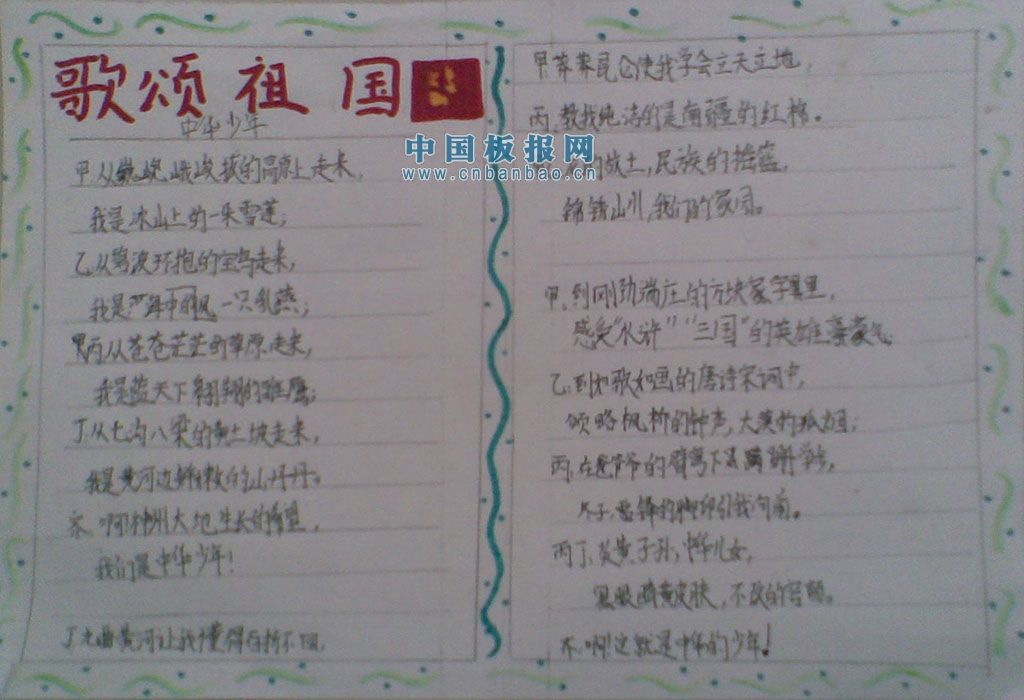 歌颂祖国
中华少年
甲.从巍峨峻拔的高原上走来，
我是冰山上的一朵雪莲；
乙.从碧波环抱的宝岛走来，
我是海中的一只乳燕；
丙.从苍苍茫茫的草原走来，
我是蓝天下翱翔的雏鹰；
丁.从七沟八梁的黄土坡走来，
我是黄河边鲜嫩的山丹丹。
齐.啊!神州大地生长的希望，
我们是中华少年!
丁.九曲黄河让我懂得百折不
甲.莽莽昆仑使我学会立天立地，
丙.教我纯洁的是南疆的红棉。
的故土,民族的摇篮，
锦绣山川,我们的家园。
甲.到刚劲端庄的方块字里，
感受"水浒""三国"的英雄豪气
乙.到如歌如画的唐诗宋词中，
领略枫桥的钟声,大漠的孤烟；
丙.在爷爷的臂弯下蹒跚学步，
雷锋的脚印引我向前。
丙丁.炎黄子孙,中华儿女，
黑眼睛黄皮肤,不改的容颜。
齐.啊!这就是中华的少年!
中国板报网
www.cnbanbao.cn